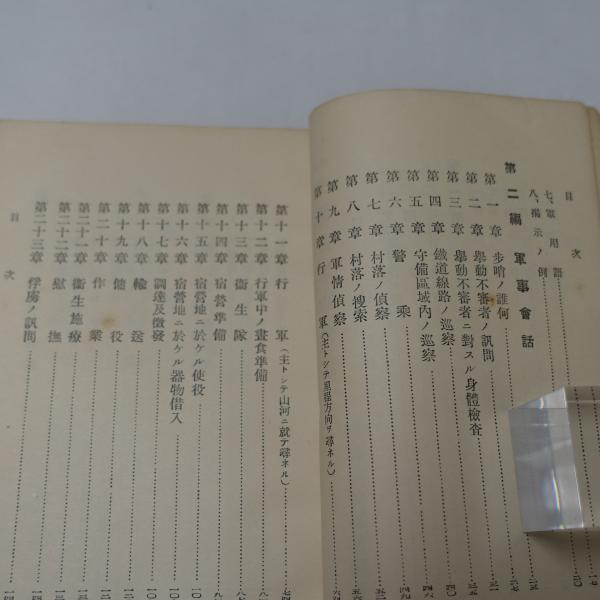 目次
七、軍用語
八、揭示ノ例
第二編 軍事會話
第一章 步哨ノ誰何
第二章 擧動不審者ノ訊問
第三章 擧動不審者ニ對スル身體檢査
第四章 鐵道線路ノ巡察
第五章 守備區域內ノ巡察
第六章 警乘
第七章 村落ノ偵察
第八章 村落ノ搜索
第九章 軍情偵察
第十章 行軍(主トシテ里程方向ヲ尋ネル)
第十一章 行軍(主トシテ山河ニ就テ尋ネル)
第十二章 行軍中ノ晝食準備
第十三章 衞生隊
第十四章 宿營準備
第十五章 宿營地ニ於ケル使役
第十六章 宿營地ニ於ケル器物借入
第十七章 調達及徵發
第十八章 輸送
第十九章 傭役
第二十章 作業
第二十一章 衞生施療
第二十二章 慰撫
第二十三章 俘虜ノ訊問
目次